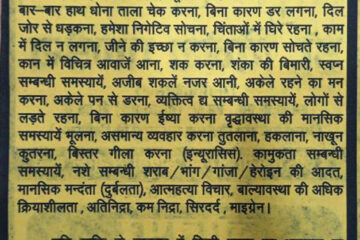 बार–बार हाथ धोना ताला चेक करना, बिना कारण डर लगना, दिल
जोर से धड़कना, हमेशा निगेटिव सोचना, चिंताओं में घिरे रहना , काम
में दिल न लगना, जीने की इच्छा न करना, बिना कारण सोचते रहना,
कान में विचित्र आवाजें आना, शक करना, शंका की बिमारी, स्वप्न
सम्बन्धी समस्यायें, अजीब शकलें नजर आनी, अकेले रहने का मन
करना, अकेले पन से डरना, व्यक्तित्व द्य सम्बन्धी समस्यायें, लोगों से
लड़ते रहना, बिना कारण ईष्या करना वृद्धावस्था की मानसिक
समस्यायें भूलना, असमान्य व्यवहार करना तुतलाना, हकलाना, नाखून
कुतरना, बिस्तर गीला करना (इन्यूरासिस). कामुकता सम्बन्धी
समस्यायें, नशे सम्बन्धी शराब/भांग/गांजा/हेरोइन की आदत,
मानसिक मन्दता (दुर्बलता), आत्महत्या विचार, बाल्यावस्था की अधिक
क्रियाशीलता , अतिनिद्रा, कम निद्रा, सिरदर्द , माइग्रेन।